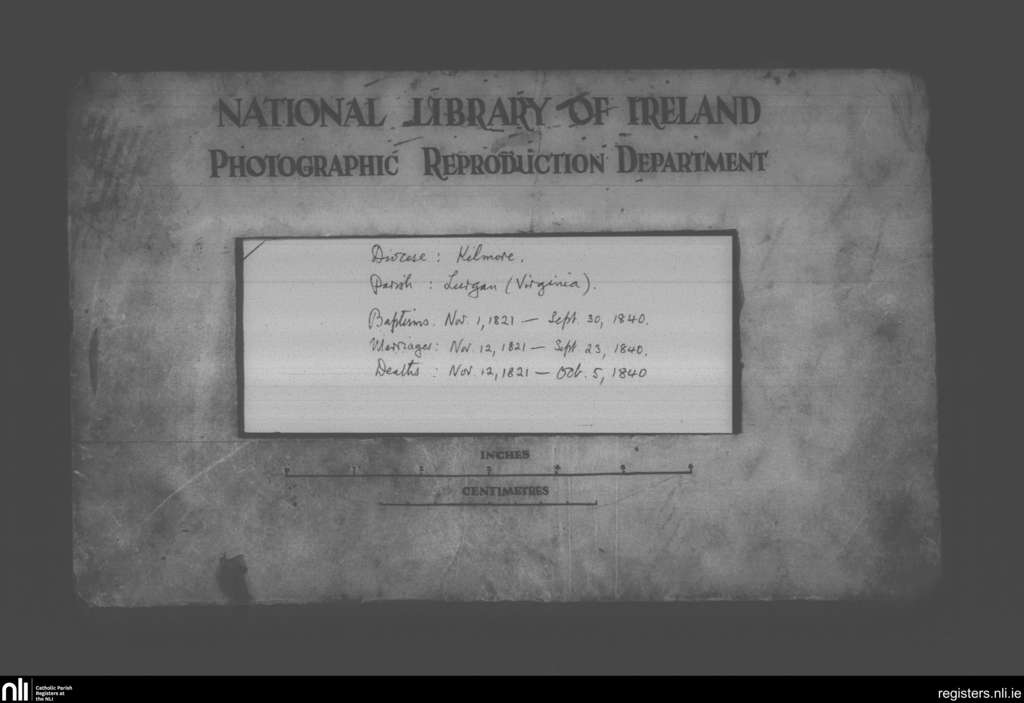 NATIONAL LIBRARY OF IRELAND
PHOTOGRAPHIC REPRODUCTION DEPARTMENT
Diocese : Kilmore.
Parish : Lurgan (Virginia).
Baptisms. Nov. 1, 1821 — Sept. 30, 1840.
Marriages: Nov. 12, 1821 — Sept. 23, 1840.
Deaths : Nov. 12, 1821 — Oct. 5, 1840
INCHES
0 1 2 3 4 5 6
CENTIMETRES
nli Catholic Parish
Registers at
the NLI
registers.nli.ie